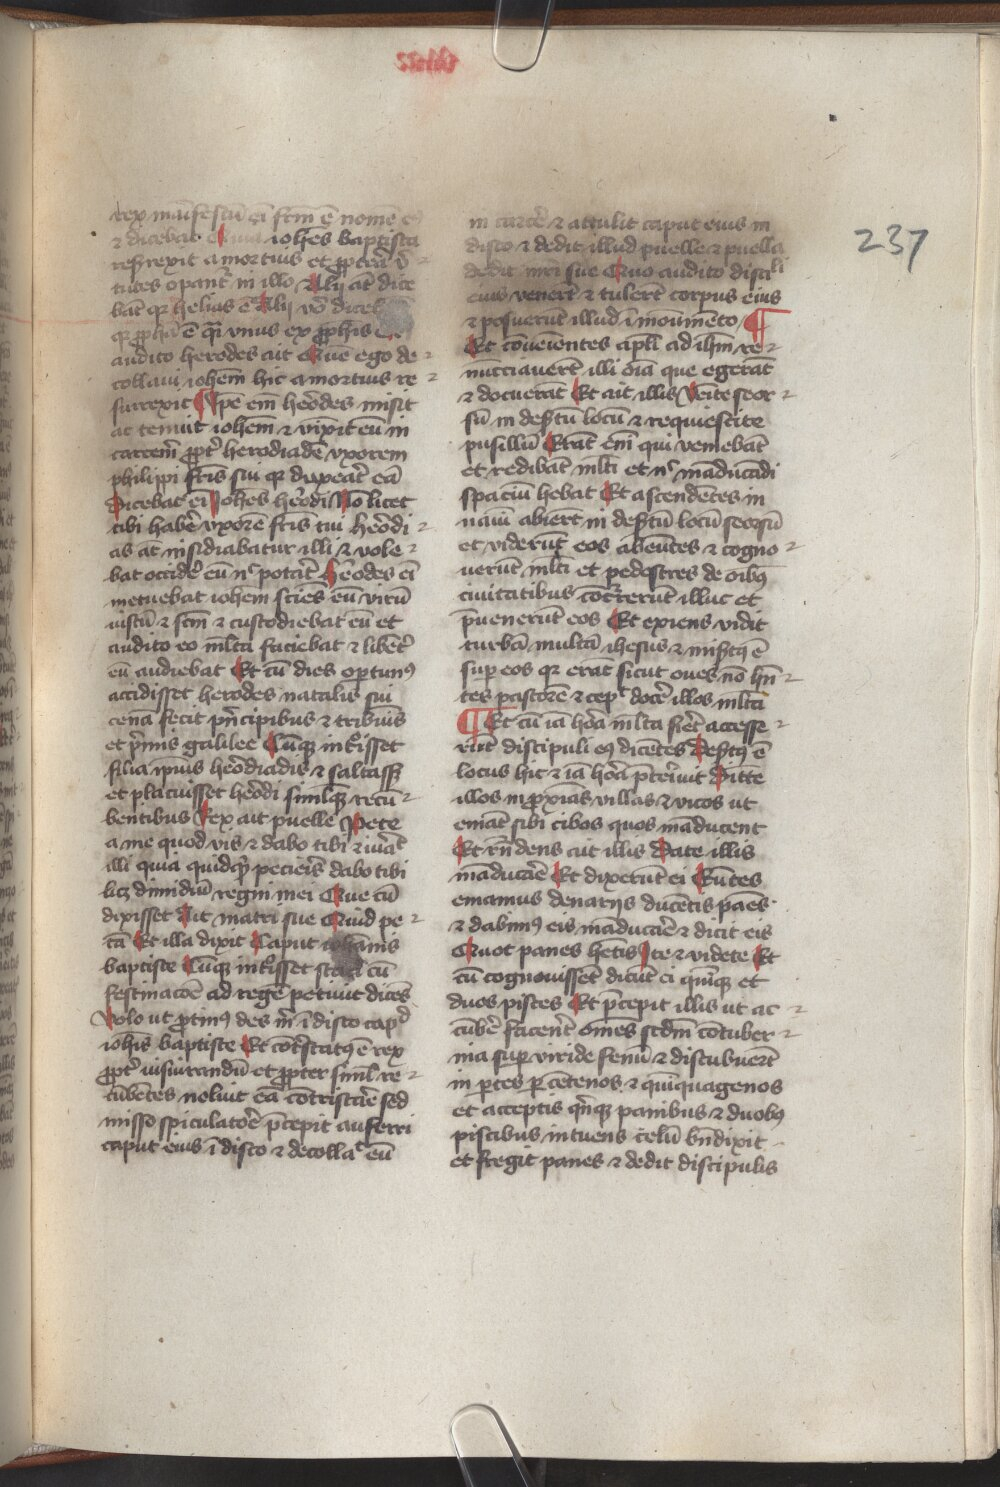 237
rex manifestū ei͞ fcm̄ ē nomē eꝰ
⁊ dicebat iohēs baptista
resurrexit a mortuis et ꝓpterea v̄
tutes opant᷑ in illo ⁊ Alij at̄ dice
bāt qꝛ helias ē Alij vō
qꝛ ꝓpha ē qͣi vnus ex ꝓphīs
audito herodes ait Que ego de
collaui iohēm hic a mortuis re
surrexit ¶ Ip̄e em̄ herōdes misit
ac tenuit iohēm ⁊ vīxit eū in
carcem̄ ꝓpt̾ herodiadē vxorem
philippi frīs sui qꝛ duxeāt eā
Dicebat ei͞ Johēs herōdi Nō licet
tibi habē vxorē frīs tui herōdi
as āt insidiabatur illi ⁊ vole
bat occidē eū nͨ potāt herōdes ei͞
metuebat iohēm sciēs eū virū
iustū ⁊ scm̄ ⁊ custodiebat eū et
audito eo ml̄ta faciebat ⁊ libēt̾
eū audiebat Et cū dies oportunꝰ
accidisset herodes natalis sui
cenā fecit pn̄cipibus ⁊ tribunis
et pͥmis galilee Cūqꝫ introisset
filia ipīus herōdiadis ⁊ saltassꝫ
et placuisset herōdi simlqꝫ recū
bentibus Rex ait puelle Pete
a me quod vis ⁊ dabo tibi ⁊ iuāt
illi quia quidqͥd pecieris dabo tibi
licꝫ dimidiū regni mei Que cū
dixisset Ait matri sue Quid pe
tā Et illa dixit Caput iohānis
baptiste Cūqꝫ introisset statī cū
festinacōe ad regē petiuit dicēs
Volo ut ꝓtinꝰ des mͥ ī disco capᵈ
iohīs baptiste Et cōtͥstatꝰ ē rex
ꝓpt̾ iusiurandū et ꝓpter siml̄ re
cūbētes noluit eā cōtristāre sed
misso spiculatōe p̄cepit aufferri
caput eius ī disco ⁊ decollaͭ eū
in carcē ⁊ attulit caput eius in
disco ⁊ dedit illud puelle ⁊ puella
dedit mr̄i sue Quo audito disciꝉi
eius venerūt ⁊ tulerūt corpus eius
⁊ posuerunt illud ī monumēto ¶
Et cōueientes apl̄i ad ihm̄ re
nūcciauerūt illi oīa que egerāt
⁊ docuerāt Et ait illis Veīte seor
sū in desertū locū ⁊ requiescite
pusillū Erāt em̄ qui veniebāt
et redibāt ml̄ti et nͨ māducādi
spaciū hebat Et ascendētes in
nauī abierūt in desertū locū seorsū
et viderūt eos abeūtes ⁊ cogno
uerūt ml̄ti et pedestres de oībꝰ
ciuitatibus cōcrrerūt illuc et
p̄uenerūt eos Et exiens vidit
turbā multā ihesus ⁊ misertꝰ ē
super eos qꝛ erāt sicut oues nō hn̄
tes pastorē ⁊ cepͭ docē illos ml̄ta
¶ Et cū iā hora ml̄ta fiēt accesse
rūt discipuli eꝰ dicētes Desertꝰ ē
locus hic ⁊ iā hōa p̄teriuit Dimitte
illos in ꝓxīas villas ⁊ vicos ut
emāt sibi cibos quos māducent
Et rn̄dens ait illis Date illis
māducāre Et dixerūt ei Eūtes
emamus denarijs ducētis pāes
⁊ dabimꝰ eis māducāre ⁊ dicit eis
Quot panes hētis Ite ⁊ videte Et
cū cognouissēt dicūt ei qn̄qꝫ et
duos pisces Et p̄cepit illis ut ac
cūbē facēnt omēs secdm̄ cōtuber
nia super viride fenū ⁊ discubuerūt
in ꝑtes per cētenos ⁊ quīquagenos
et acceptis qn̄qꝫ panibus ⁊ duobꝰ
piscibus intuens celū bn̄dixit
et fregit panes ⁊ dedit discipulis